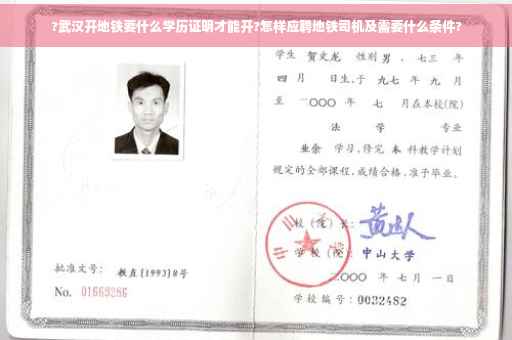 ?武汉开地铁要什么学历证明才能开?怎样应聘地铁司机及需要什么条件?
学生 贺文龙 性别 男 、七三 年
四 月 日生,于 九七 年 九 月
至 二〇〇〇 年 七 月在本校(院)
法 学 专业
业余 学习,修完 本 科教学计划
规定的全部课程,成绩合格,准予毕业。
校 (院) 长:
学 校 (院): 中山大学
二〇〇〇 年 七 月 一 日
批准文号: 教直[1993]8号
No. 01669286
学校编号: 0032482